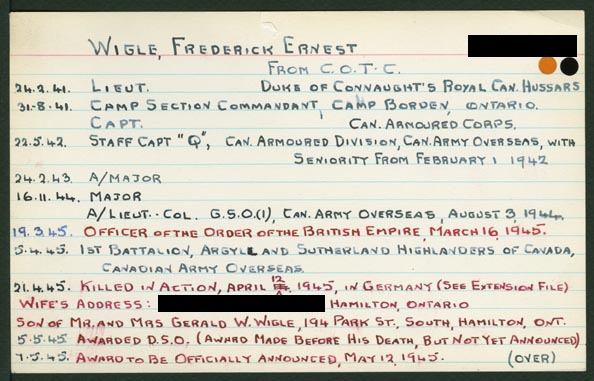 WIGLE, FREDERICK ERNEST
FROM C.O.T.C.
24.2.41. LIEUT. DUKE OF CONNAUGHT'S ROYAL CAN. HUSSARS
31-8-41. CAMP SECTION COMMANDANT, CAMP BORDEN, ONTARIO.
CAPT. CAN. ARMOURED CORPS.
22.5.42. STAFF CAPT "Q", CAN. ARMOURED DIVISION, CAN. ARMY OVERSEAS, WITH
SENIORITY FROM FEBRUARY 1 1942
24.2.43. A/MAJOR
16.11.44. MAJOR
A/LIEUT.-COL. G.S.O.(1), CAN. ARMY OVERSEAS, AUGUST 3, 1944.
19.3.45. OFFICER OF THE ORDER OF THE BRITISH EMPIRE, MARCH 16, 1945.
5.4.45. 1ST BATTALION, ARGYLL AND SUTHERLAND HIGHLANDERS OF CANADA,
CANADIAN ARMY OVERSEAS.
21.4.45. KILLED IN ACTION, APRIL 12, 1945, IN GERMANY (SEE EXTENSION FILE)
WIFE'S ADDRESS: HAMILTON, ONTARIO
SON OF MR. AND MRS GERALD W. WIGLE, 194 PARK ST., SOUTH, HAMILTON, ONT.
5-5-45 AWARDED D.S.O. (AWARD MADE BEFORE HIS DEATH, BUT NOT YET ANNOUNCED)
7.5.45. AWARD TO BE OFFICIALLY ANNOUNCED, MAY 12, 1945. (OVER)